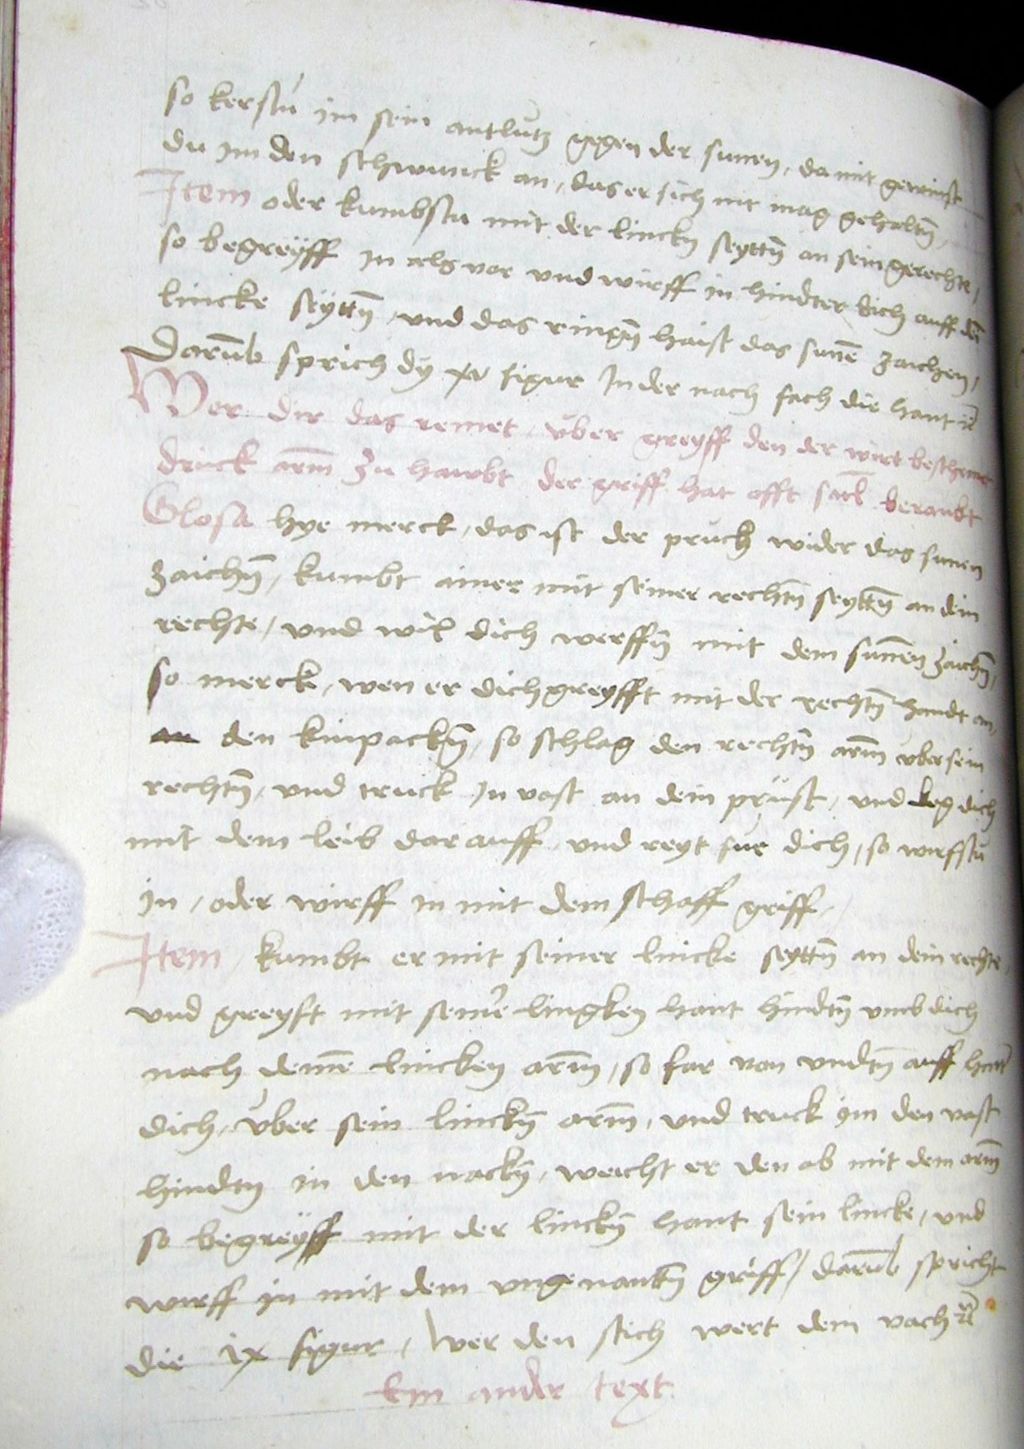 so kerstu im sein antlutz gegen der sunnen, da mit gewinst
du im den schwanck an, das er sich nit mag gehaltn̄,
Item oder kumbstu mit der linckn seyttn̄ an sein gerechte,
so begreÿff in als vor vnd wirff in hindter dich auff den̄
lincke seÿttn̄, vnd das ringn̄ haist das sunē zaichen,
Darūb sprich dy xv figur In der nach fach die hant &c
Wer dir das remet, über greyff den der wirt beschemet
druck arm̄ zu hawbt der griff hat offt beraubt
Glosa hye merck, das ist der pruch wider das sunen
zaichn̄, kumbt ainer mit seiner rechtn̄ seyttn̄ an dein
rechte, vnd wil dich werffn̄ mit dem sun̄en zaichn̄,
so merck, wen er dich greyfft mit der rechtn̄ handt an,
den kinpackn̄, so schlag den rechtn̄ arm̄ vber sein
rechtn̄, vnd truck in vast an dein prüst, vnd leg dich
mit dem leib dar auff, vnd reyt für dich, so wirfstu
in, oder wirff in mit dem schaff griff,
Item, kumbt er mit seiner lincke seyttn̄ an dein rechte,
vnd greyft mit seiner lingken hant hindtn̄ vmb dich
nach deine lincken arm̄, so far von vndtn̄ auff hintr̄
dich, über sein linckn̄ arm̄, vnd truck im den vast
hindtn in den nackn̄, weicht er den ab mit dem arm̄
so begreÿff mit der linckn̄ hant sein lincke, vnd
wirff in mit dem vngenantn̄ griff, darūb spricht
die ix figur, wer den stich wert dem nach &c
Ein ander text